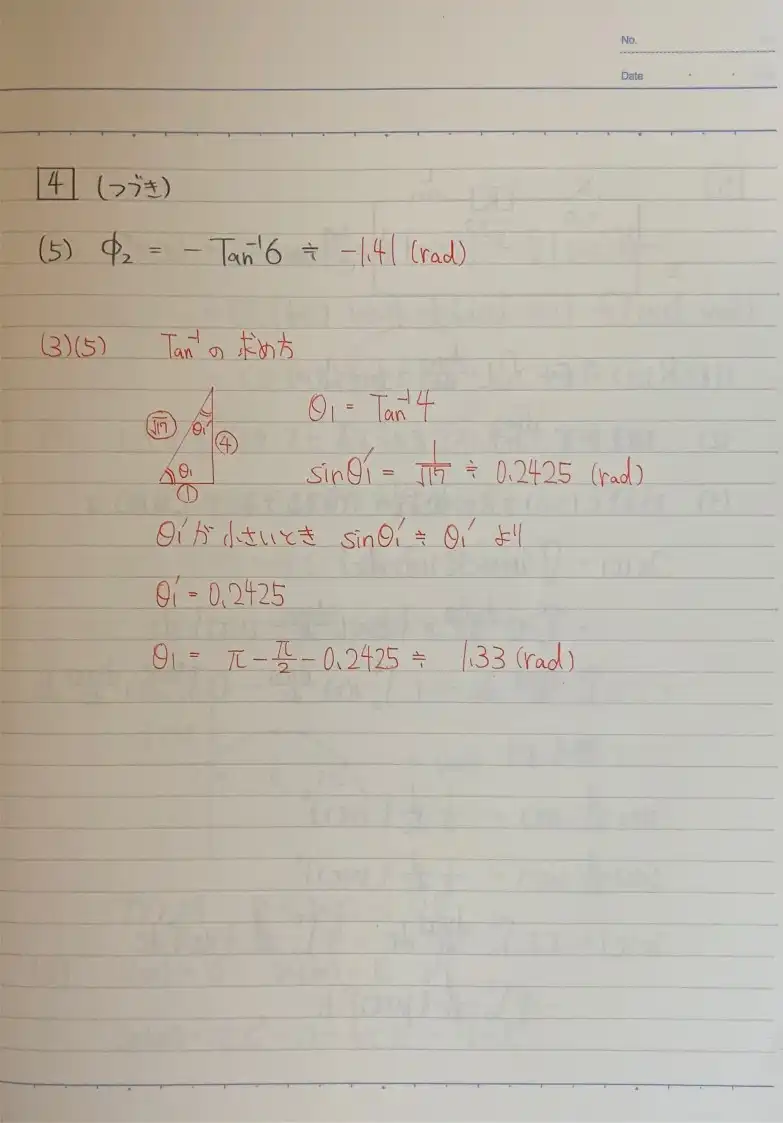 No.
Date
4 (つづき)
(5) Φ₂ = - Tan⁻¹6 ≒ -1.41 (rad)
(3)(5) Tan⁻¹の求め方
θ₁ = Tan⁻¹4
√17 θ₁′ 4
sinθ₁′ = 1/√17 ≒ 0.2425 (rad)
θ₁
1
θ₁′が小さいとき sinθ₁′≒ θ₁′ より
θ₁′= 0.2425
θ₁ = π - π/2 - 0.2425 ≒ 1.33 (rad)